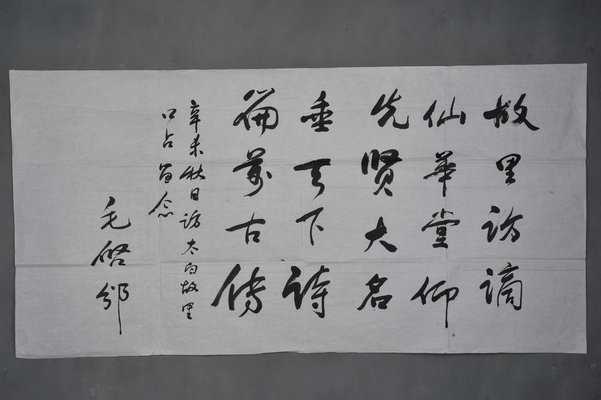 故里访谪
仙华堂仰
先贤大名
垂天下诗
篇万古传
辛未秋日访太白故里
口占留念
毛启邠